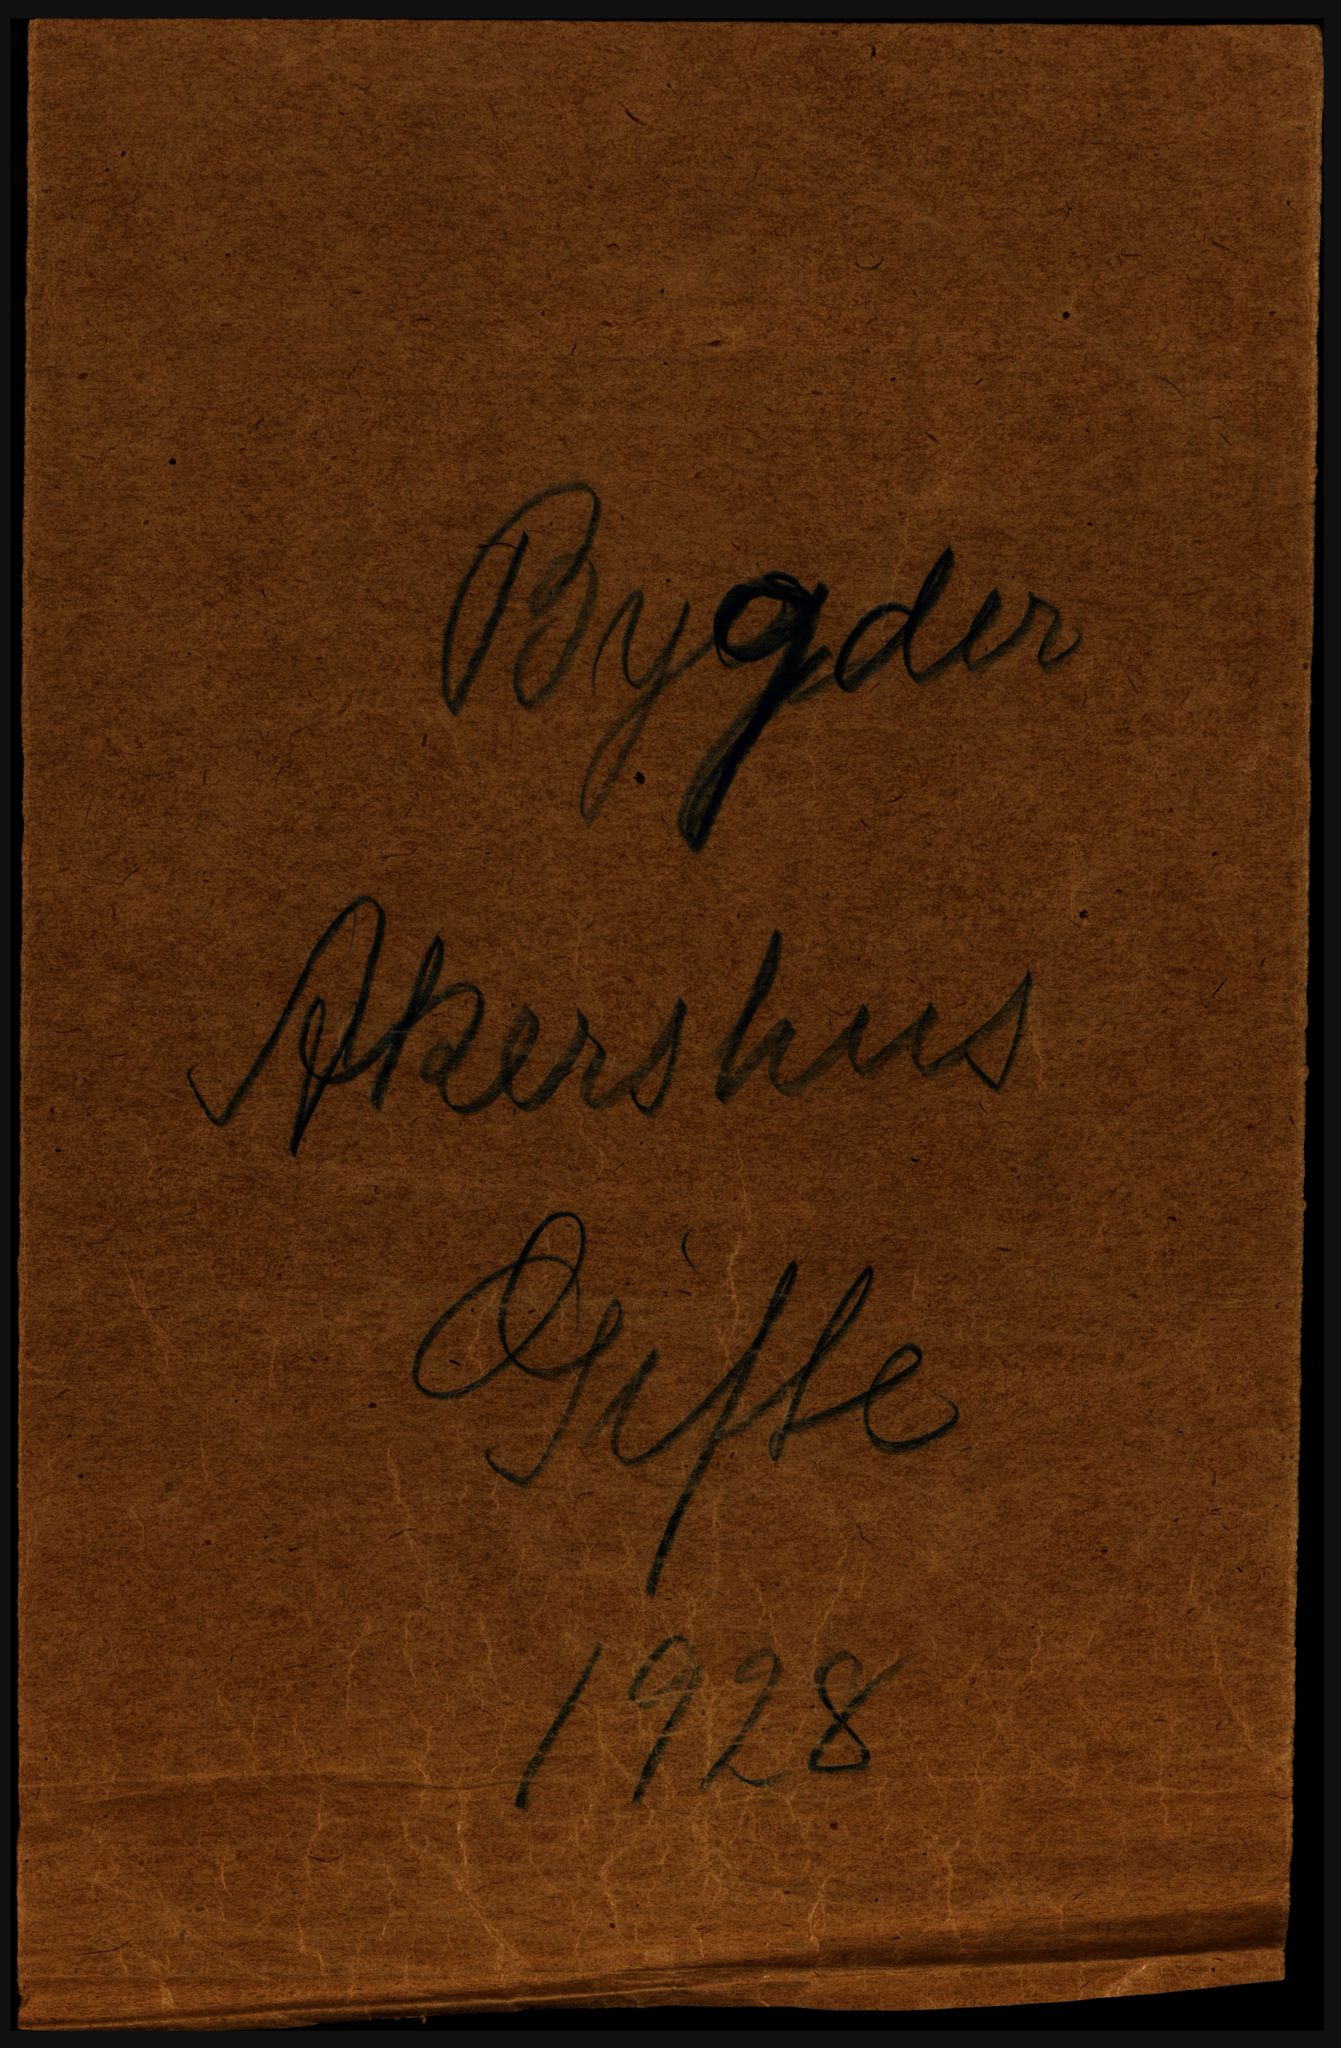 Bygder
Akershus
Gifte
1928